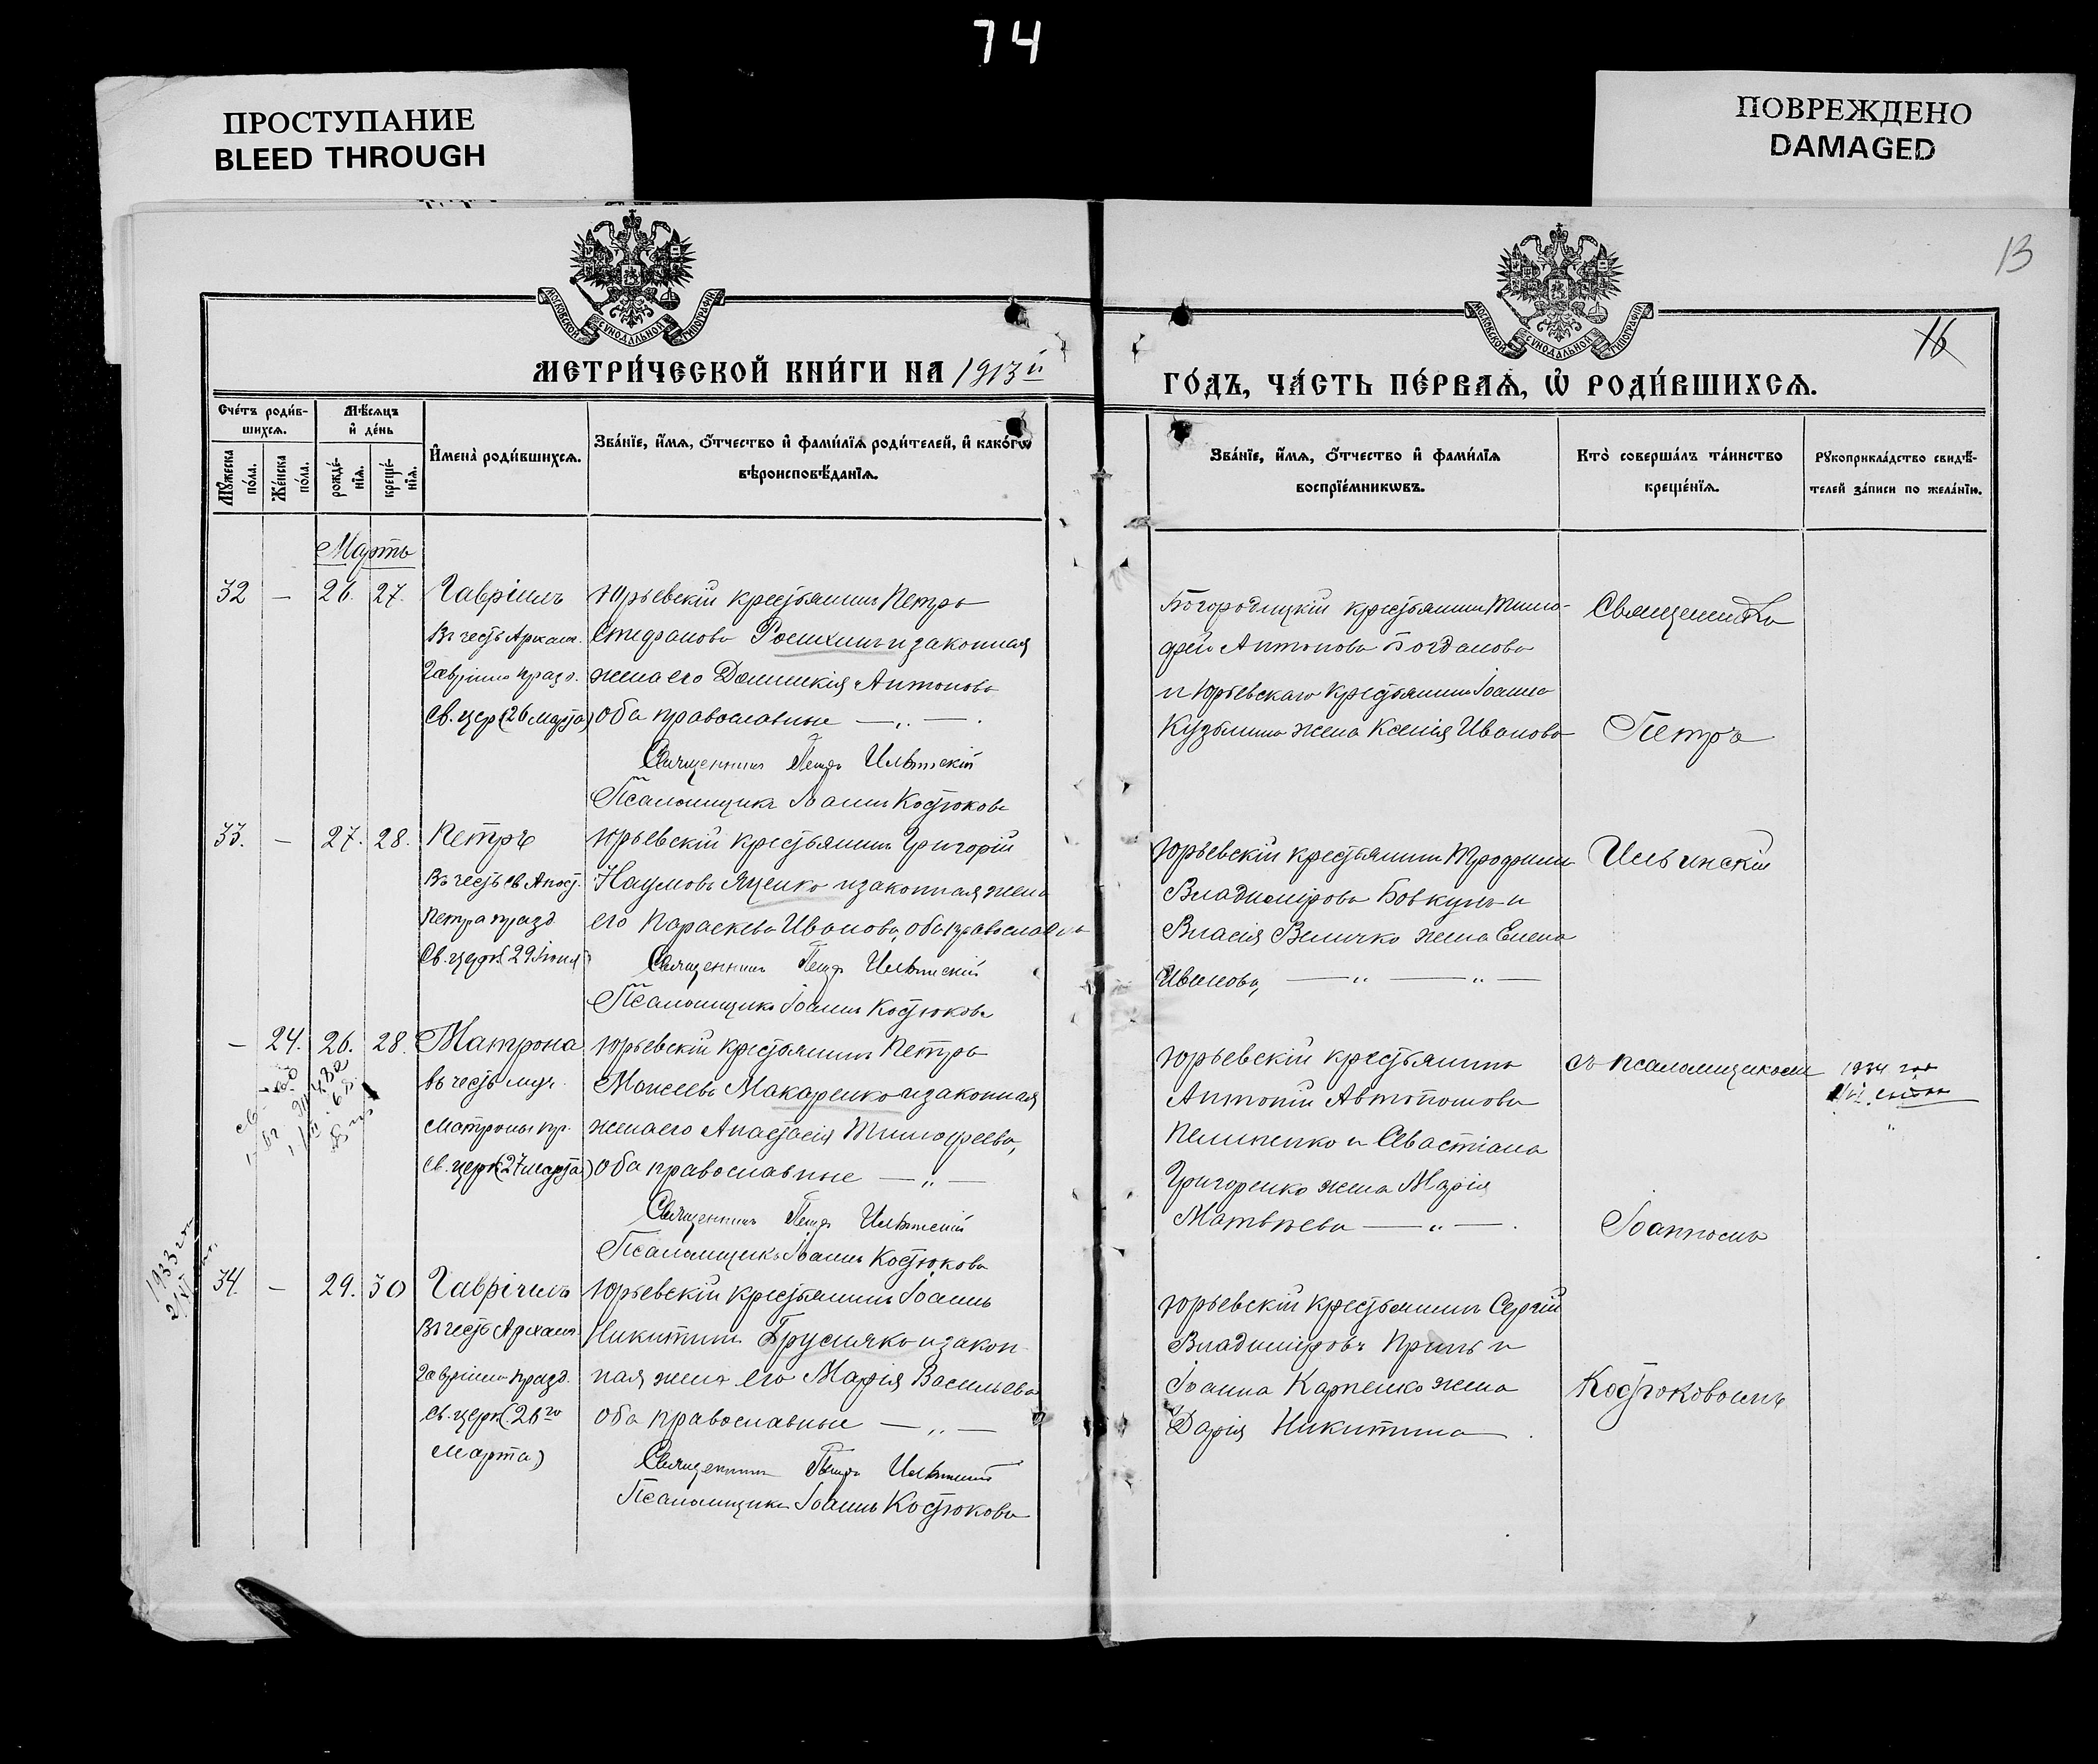 74
ПРОСТУПАНИЕ
BLEED THROUGH
ПОВРЕЖДЕНО
DAMAGED
13
16
МОСКОВСКОЙ СѴНОДАЛЬНОЙ ТИПОГРАФІИ
МОСКОВСКОЙ СѴНОДАЛЬНОЙ ТИПОГРАФІИ
МЕТРИ́ЧЕСКОЙ КНИ́ГИ НА 1913й
ГО́ДЪ, ЧА́СТЬ ПЕ́РВАѦ, Ѡ҆ РОДИ́ВШИХСѦ.
Сче́тъ роди́в-
шихсѧ.
Мѣ́сѧцъ
и҆ де́нь
Мꙋ́жеска
по́ла.
Же́нска
по́ла.
рожде́-
нїѧ.
креще́-
нїѧ.
И҆мена̀ роди́вшихсѧ.
Зва́нїе, и҆́мѧ, ѻ҆́тчество и҆ фами́лїѧ роди́телей, и҆ како́гѡ
вѣроисповѣ́данїѧ.
Зва́нїе, и҆́мѧ, ѻ҆́тчество и҆ фами́лїѧ
воспрїе́мникѡвъ.
Кто̀ соверша́лъ та́инство
креще́нїѧ.
Рꙋкоприкла́дство свидѣ́-
телей за́писи по жела́нїю.
Мартъ
32 — 26. 27. Гавріилъ
Въ честь Архан.
Гавріила празд.
Св. цер (26 Марта)
Юрьевскій крестьянинъ Петръ
Стефановъ и законная
жена его Антонова
оба православные — „ — .
Священникъ Петръ Ильинскій
Псаломщикъ Іоаннъ Костюковъ
Богородицкій крестьянинъ Тимо-
фей Антоновъ Богдановъ
и Юрьевскаго крестьянина Іоанна
Кузьмина жена Ксенія Иванова
Священникъ
Петръ
33. — 27. 28. Петръ
Въ честь св Апост.
Петра празд
Св. церк. 29 Іюня
Юрьевскій крестьянинъ Григорій
Наумовъ Яценко и законная жена
его Параскева Иванова, оба православн
Священникъ Петръ Ильинскій
Псаломщикъ Іоаннъ Костюковъ
Юрьевскій крестьянинъ Трофимъ
Владиміровъ Бовкунъ и
Власія Величко жена Елена
Иванова, — „ — „ —
Ильинскій
— 24. 26. 28. Матрона
въ честь муч.
Матроны пр.
Св. церк (27 марта)
Юрьевскій крестьянинъ Петръ
Моисеевъ Макаренко и законная
жена его Анастасія Тимофеева,
оба православные — „ —
Священникъ Петръ Ильинскій
Псаломщикъ Іоаннъ Костюковъ
Юрьевскій крестьянинъ
Антоній Автономовъ
и Севастіана
Григоренко жена Марія
Матвѣева — „ — .
съ псаломщикомъ
Іоанномъ
1934
1933
34. — 29. 30 Гавріилъ
Въ честь Архан.
Гавріила празд.
Св. церк (26го
Марта)
Юрьевскій крестьянинъ Іоаннъ
Никитинъ и закон
ная жена его Марія Васильева
оба православные — „ —
Священникъ Петръ Ильинскій
Псаломщикъ Іоаннъ Костюковъ
Юрьевскій крестьянинъ Сергій
Владиміровъ и
Іоанна Карпенко жена
Дарія Никитина .
Костюковымъ